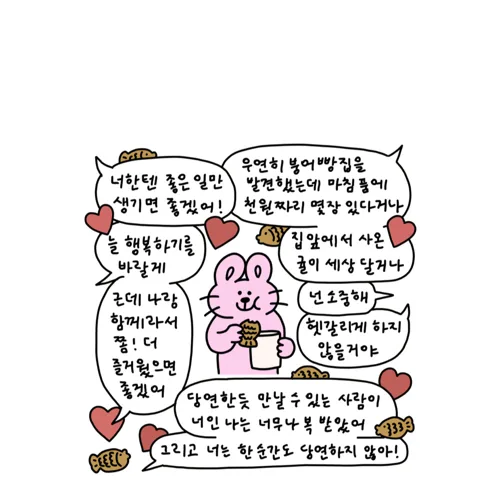 너한텐 좋은 일만
생기면 좋겠어!
우연히 붕어빵집을
발견했는데 마침 품에
천원짜리 몇장 있다거나
늘 행복하기를
바랄게
집앞에서 사온
귤이 세상 달거나
넌 소중해
헷갈리게 하지
않을거야
근데 나랑
함께라서
쫌! 더
즐거웠으면
좋겠어
당연한듯 만날 수 있는 사람이
너인 나는 너무나 복 받았어
그리고 너는 한순간도 당연하지 않아!